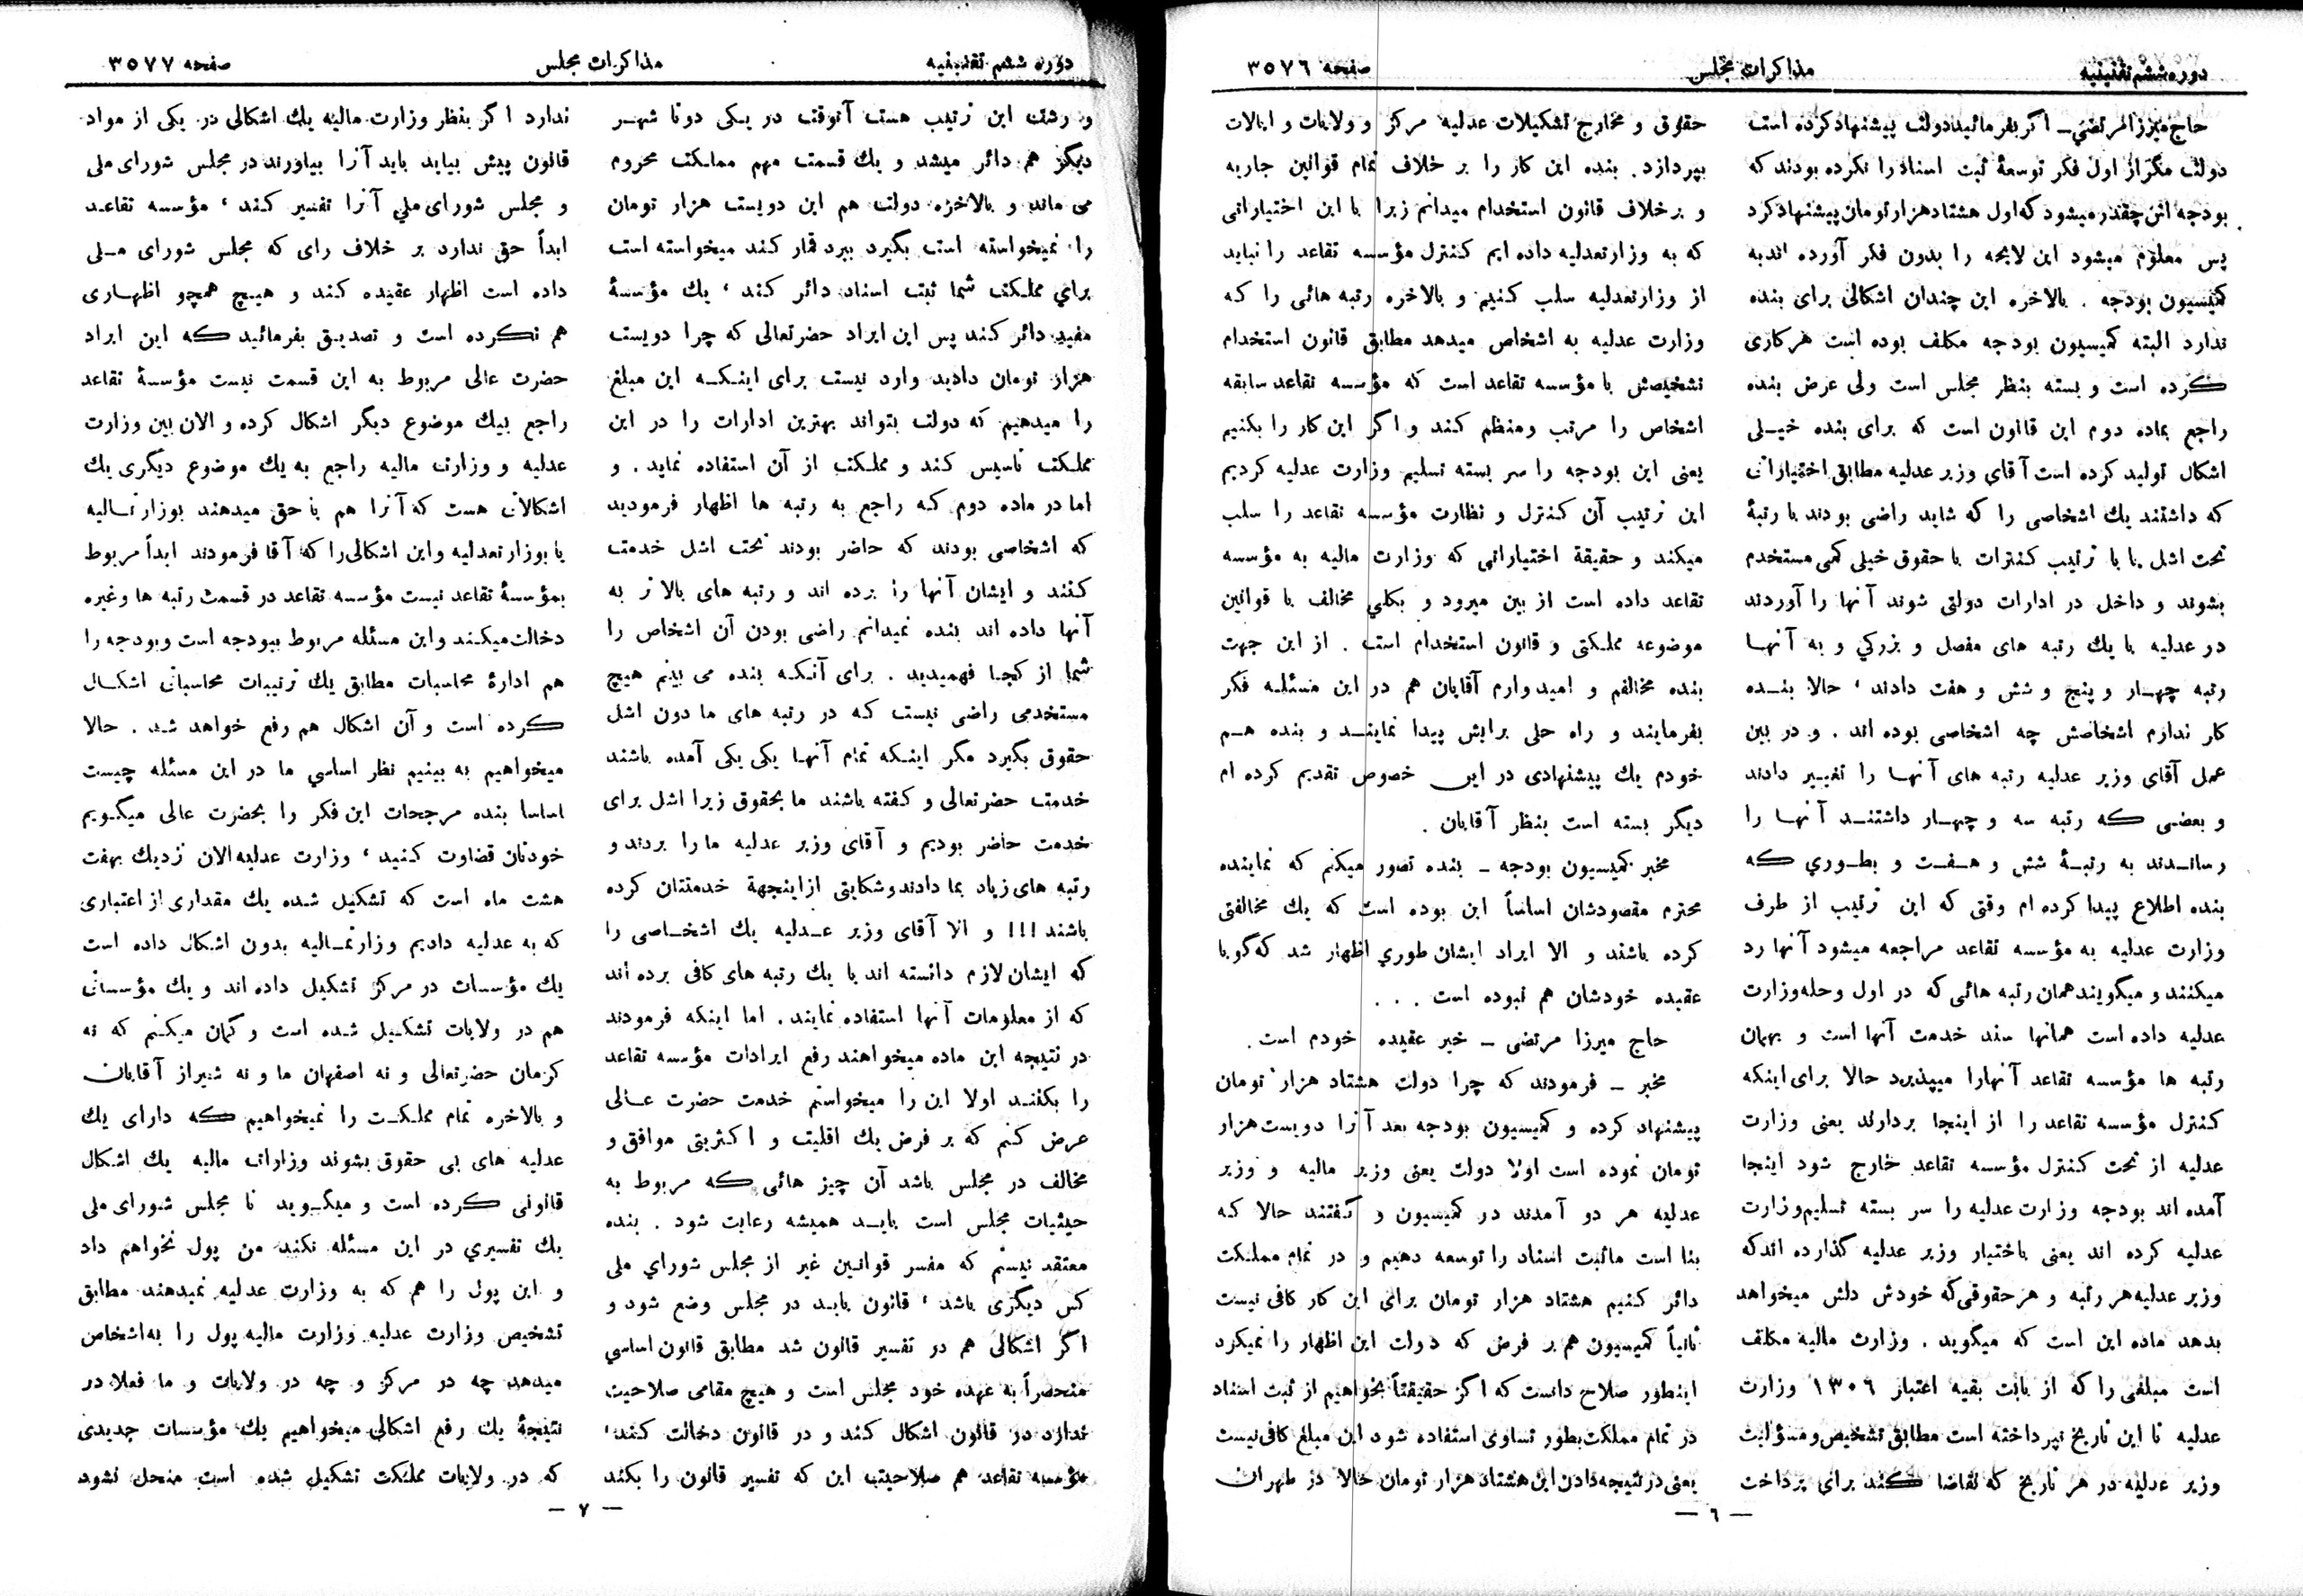 دوره ششم تقنینیه
مذاکرات مجلس
صفحه ۳۵۷۶
حاج میرزا مرتضی ـ اگر بفرمائید دولت پیشنهاد کرده است
دولت مگر از اول فکر توسعهٔ ثبت اسناد را نکرده بودند که
بودجه اش چقدر میشود که اول هشتاد هزار تومان پیشنهاد کرد
پس معلوم میشود این لایحه را بدون فکر آورده اند به
کمیسیون بودجه . بالاخره این چندان اشکالی برای بنده
ندارد البته کمیسیون بودجه مکلف بوده است هر کاری
کرده است و بسته بنظر مجلس است ولی عرض بنده
راجع بماده دوم این قانون است که برای بنده خیلی
اشکال تولید کرده است آقای وزیر عدلیه مطابق اختیاراتی
که داشتند یك اشخاصی را که شاید راضی بودند با رتبهٔ
تحت اشل یا با ترتیب کنترات با حقوق خیلی کمی مستخدم
بشوند و داخل در ادارات دولتی شوند آنها را آوردند
در عدلیه با یك رتبه های مفصل و بزرگی و به آنها
رتبه چهار و پنج و شش و هفت دادند ، حالا بنده
کار ندارم اشخاصش چه اشخاصی بوده اند . و در بین
عمل آقای وزیر عدلیه رتبه های آنها را تغییر دادند
و بعضی که رتبه سه و چهار داشتند آنها را
رساندند به رتبهٔ شش و هفت و بطوری که
بنده اطلاع پیدا کرده ام وقتی که این ترتیب از طرف
وزارت عدلیه به مؤسسه تقاعد مراجعه میشود آنها رد
میکنند و میگویند همان رتبه هائی که در اول وحله وزارت
عدلیه داده است همانها سند خدمت آنها است و بهمان
رتبه ها مؤسسه تقاعد آنهارا میپذیرد حالا برای اینکه
کنترل مؤسسه تقاعد را از اینجا بردارند یعنی وزارت
عدلیه از تحت کنترل مؤسسه تقاعد خارج شود اینجا
آمده اند بودجه وزارت عدلیه را سر بسته تسلیم وزارت
عدلیه کرده اند یعنی باختیار وزیر عدلیه گذارده اند که
وزیر عدلیه هر رتبه و هر حقوقی که خودش دلش میخواهد
بدهد ماده این است که میگوید . وزارت مالیه مکلف
است مبلغی را که از بابت بقیه اعتبار ۱۳۰٦ وزارت
عدلیه تا این تاریخ نپرداخته است مطابق تشخیص و مسؤلیت
وزیر عدلیه در هر تاریخ که تقاضا کند برای پرداخت
حقوق و مخارج تشکیلات عدلیه مرکز و ولایات و ایالات
بپردازد . بنده این کار را بر خلاف تمام قوانین جاریه
و بر خلاف قانون استخدام میدانم زیرا با این اختیاراتی
که به وزارتعدلیه داده ایم کنترل مؤسسه تقاعد را نباید
از وزارتعدلیه سلب کنیم و بالاخره رتبه هائی را که
وزارت عدلیه به اشخاص میدهد مطابق قانون استخدام
تشخیصش با مؤسسه تقاعد است که مؤسسه تقاعد سابقه
اشخاص را مرتب ومنظم کند و اگر این کار را بکنیم
یعنی این بودجه را سر بسته تسلیم وزارت عدلیه کردیم
این ترتیب آن کنترل و نظارت مؤسسه تقاعد را سلب
میکند و حقیقة اختیاراتی که وزارت مالیه به مؤسسه
تقاعد داده است از بین میرود و بکلی مخالف با قوانین
موضوعه مملکتی و قانون استخدام است . از این جهت
بنده مخالفم و امیدوارم آقایان هم در این مسئله فکر
بفرمایند و راه حلی برایش پیدا نمایند و بنده هم
خودم یك پیشنهادی در این خصوص تقدیم کرده ام
دیگر بسته است بنظر آقایان .
مخبر کمیسیون بودجه ـ بنده تصور میکنم که نماینده
محترم مقصودشان اساساً این بوده است که یك مخالفتی
کرده باشند و الا ایراد ایشان طوری اظهار شد که گویا
عقیده خودشان هم نبوده است . . .
حاج میرزا مرتضی ـ خیر عقیده خودم است .
مخبر ـ فرمودند که چرا دولت هشتاد هزار تومان
پیشنهاد کرده و کمیسیون بودجه بعد آنرا دویست هزار
تومان نموده است اولا دولت یعنی وزیر مالیه و وزیر
عدلیه هر دو آمدند در کمیسیون و گفتند حالا که
بنا است ماثبت اسناد را توسعه دهیم و در تمام مملکت
دائر کنیم هشتاد هزار تومان برای این کار کافی نیست
ثانیاً کمیسیون هم بر فرض که دولت این اظهار را نمیکرد
اینطور صلاح دانست که اگر حقیقتاً بخواهیم از ثبت اسناد
در تمام مملکت بطور تساوی استفاده شود این مبلغ کافی نیست
یعنی در نتیجه دادن این هشتاد هزار تومان حالا در طهران
— ٦ —
دوره ششم تقنینیه
مذاکرات مجلس
صفحه ۳۵۷۷
و رشت این ترتیب هست آنوقت در یکی دوتا شهر
دیگر هم دائر میشد و یك قسمت مهم مملکت محروم
می ماند و بالاخره دولت هم این دویست هزار تومان
را نمیخواسته است بگیرد ببرد قمار کند میخواسته است
برای مملکت شما ثبت اسناد دائر کند ، یك مؤسسهٔ
مفید دائر کند پس این ایراد حضرتعالی که چرا دویست
هزار تومان دادید وارد نیست برای اینکه این مبلغ
را میدهیم که دولت بتواند بهترین ادارات را در این
مملکت تاسیس کند و مملکت از آن استفاده نماید . و
اما در ماده دوم که راجع به رتبه ها اظهار فرمودید
که اشخاصی بودند که حاضر بودند تحت اشل خدمت
کنند و ایشان آنها را برده اند و رتبه های بالا تر به
آنها داده اند بنده نمیدانم راضی بودن آن اشخاص را
شما از کجا فهمیدید . برای آنکه بنده می بینم هیچ
مستخدمی راضی نیست که در رتبه های ما دون اشل
حقوق بگیرد مگر اینکه تمام آنها یکی یکی آمده باشند
خدمت حضرتعالی و گفته باشند ما بحقوق زیرا اشل برای
خدمت حاضر بودیم و آقای وزیر عدلیه ما را بردند و
رتبه های زیاد بما دادند وشکایتی از اینجهة خدمتتان کرده
باشند !!! و الا آقای وزیر عدلیه یك اشخاصی را
که ایشان لازم دانسته اند با یك رتبه های کافی برده اند
که از معلومات آنها استفاده نمایند . اما اینکه فرمودند
در نتیجه این ماده میخواهند رفع ایرادات مؤسسه تقاعد
را بکنند اولا این را میخواستم خدمت حضرت عالی
عرض کنم که بر فرض یك اقلیت و اکثریتی موافق و
مخالف در مجلس باشد آن چیز هائی که مربوط به
حیثیات مجلس است باید همیشه رعایت شود . بنده
معتقد نیستم که مفسر قوانین غیر از مجلس شورای ملی
کس دیگری باشد ، قانون باید در مجلس وضع شود و
اگر اشکالی هم در تفسیر قانون شد مطابق قانون اساسی
منحصراً به عهده خود مجلس است و هیچ مقامی صلاحیت
ندارد در قانون اشکال کند و در قانون دخالت کند ،
مؤسسه تقاعد هم صلاحیت این که تفسیر قانون را بکند
ندارد اگر بنظر وزارت مالیه یك اشکالی در یکی از مواد
قانون پیش بیاید باید آنرا بیاورند در مجلس شورای ملی
و مجلس شورای ملی آنرا تفسیر کند ، مؤسسه تقاعد
ابداً حق ندارد بر خلاف رای که مجلس شورای ملی
داده است اظهار عقیده کند و هیچ همچو اظهاری
هم نکرده است و تصدیق بفرمائید که این ایراد
حضرت عالی مربوط به این قسمت نیست مؤسسهٔ تقاعد
راجع بیك موضوع دیگر اشکال کرده و الان بین وزارت
عدلیه و وزارت مالیه راجع به یك موضوع دیگری یك
اشکالاتی هست که آنرا هم با حق میدهند بوزارتمالیه
یا بوزارتعدلیه و این اشکالی را که آقا فرمودند ابداً مربوط
بمؤسسهٔ تقاعد نیست مؤسسه تقاعد در قسمت رتبه ها وغیره
دخالت میکند و این مسئله مربوط ببودجه است وبودجه را
هم ادارهٔ محاسبات مطابق یك ترتیبات محاسباتی اشکال
کرده است و آن اشکال هم رفع خواهد شد . حالا
میخواهیم به بینیم نظر اساسی ما در این مسئله چیست
اساسا بنده مرجحات این فکر را بحضرت عالی میگویم
خودتان قضاوت کنید ، وزارت عدلیه الان نزدیك بهفت
هشت ماه است که تشکیل شده یك مقداری از اعتباری
که به عدلیه دادیم وزارتمالیه بدون اشکال داده است
یك مؤسسات در مرکز تشکیل داده اند و یك مؤسساتی
هم در ولایات تشکیل شده است و گمان میکنم که نه
کرمان حضرتعالی و نه اصفهان ما و نه شیراز آقایان
و بالاخره تمام مملکت را نمیخواهیم که دارای یك
عدلیه های بی حقوق بشوند وزارت مالیه یك اشکال
قانونی کرده است و میگوید تا مجلس شورای ملی
یك تفسیری در این مسئله نکند من پول نخواهم داد
و این پول را هم که به وزارت عدلیه نمیدهند مطابق
تشخیص وزارت عدلیه وزارت مالیه پول را به اشخاص
میدهد چه در مرکز و چه در ولایات و ما فعلا در
نتیجهٔ یك رفع اشکالی میخواهیم یك مؤسسات جدیدی
که در ولایات مملکت تشکیل شده است منحل نشود
— ۷ —